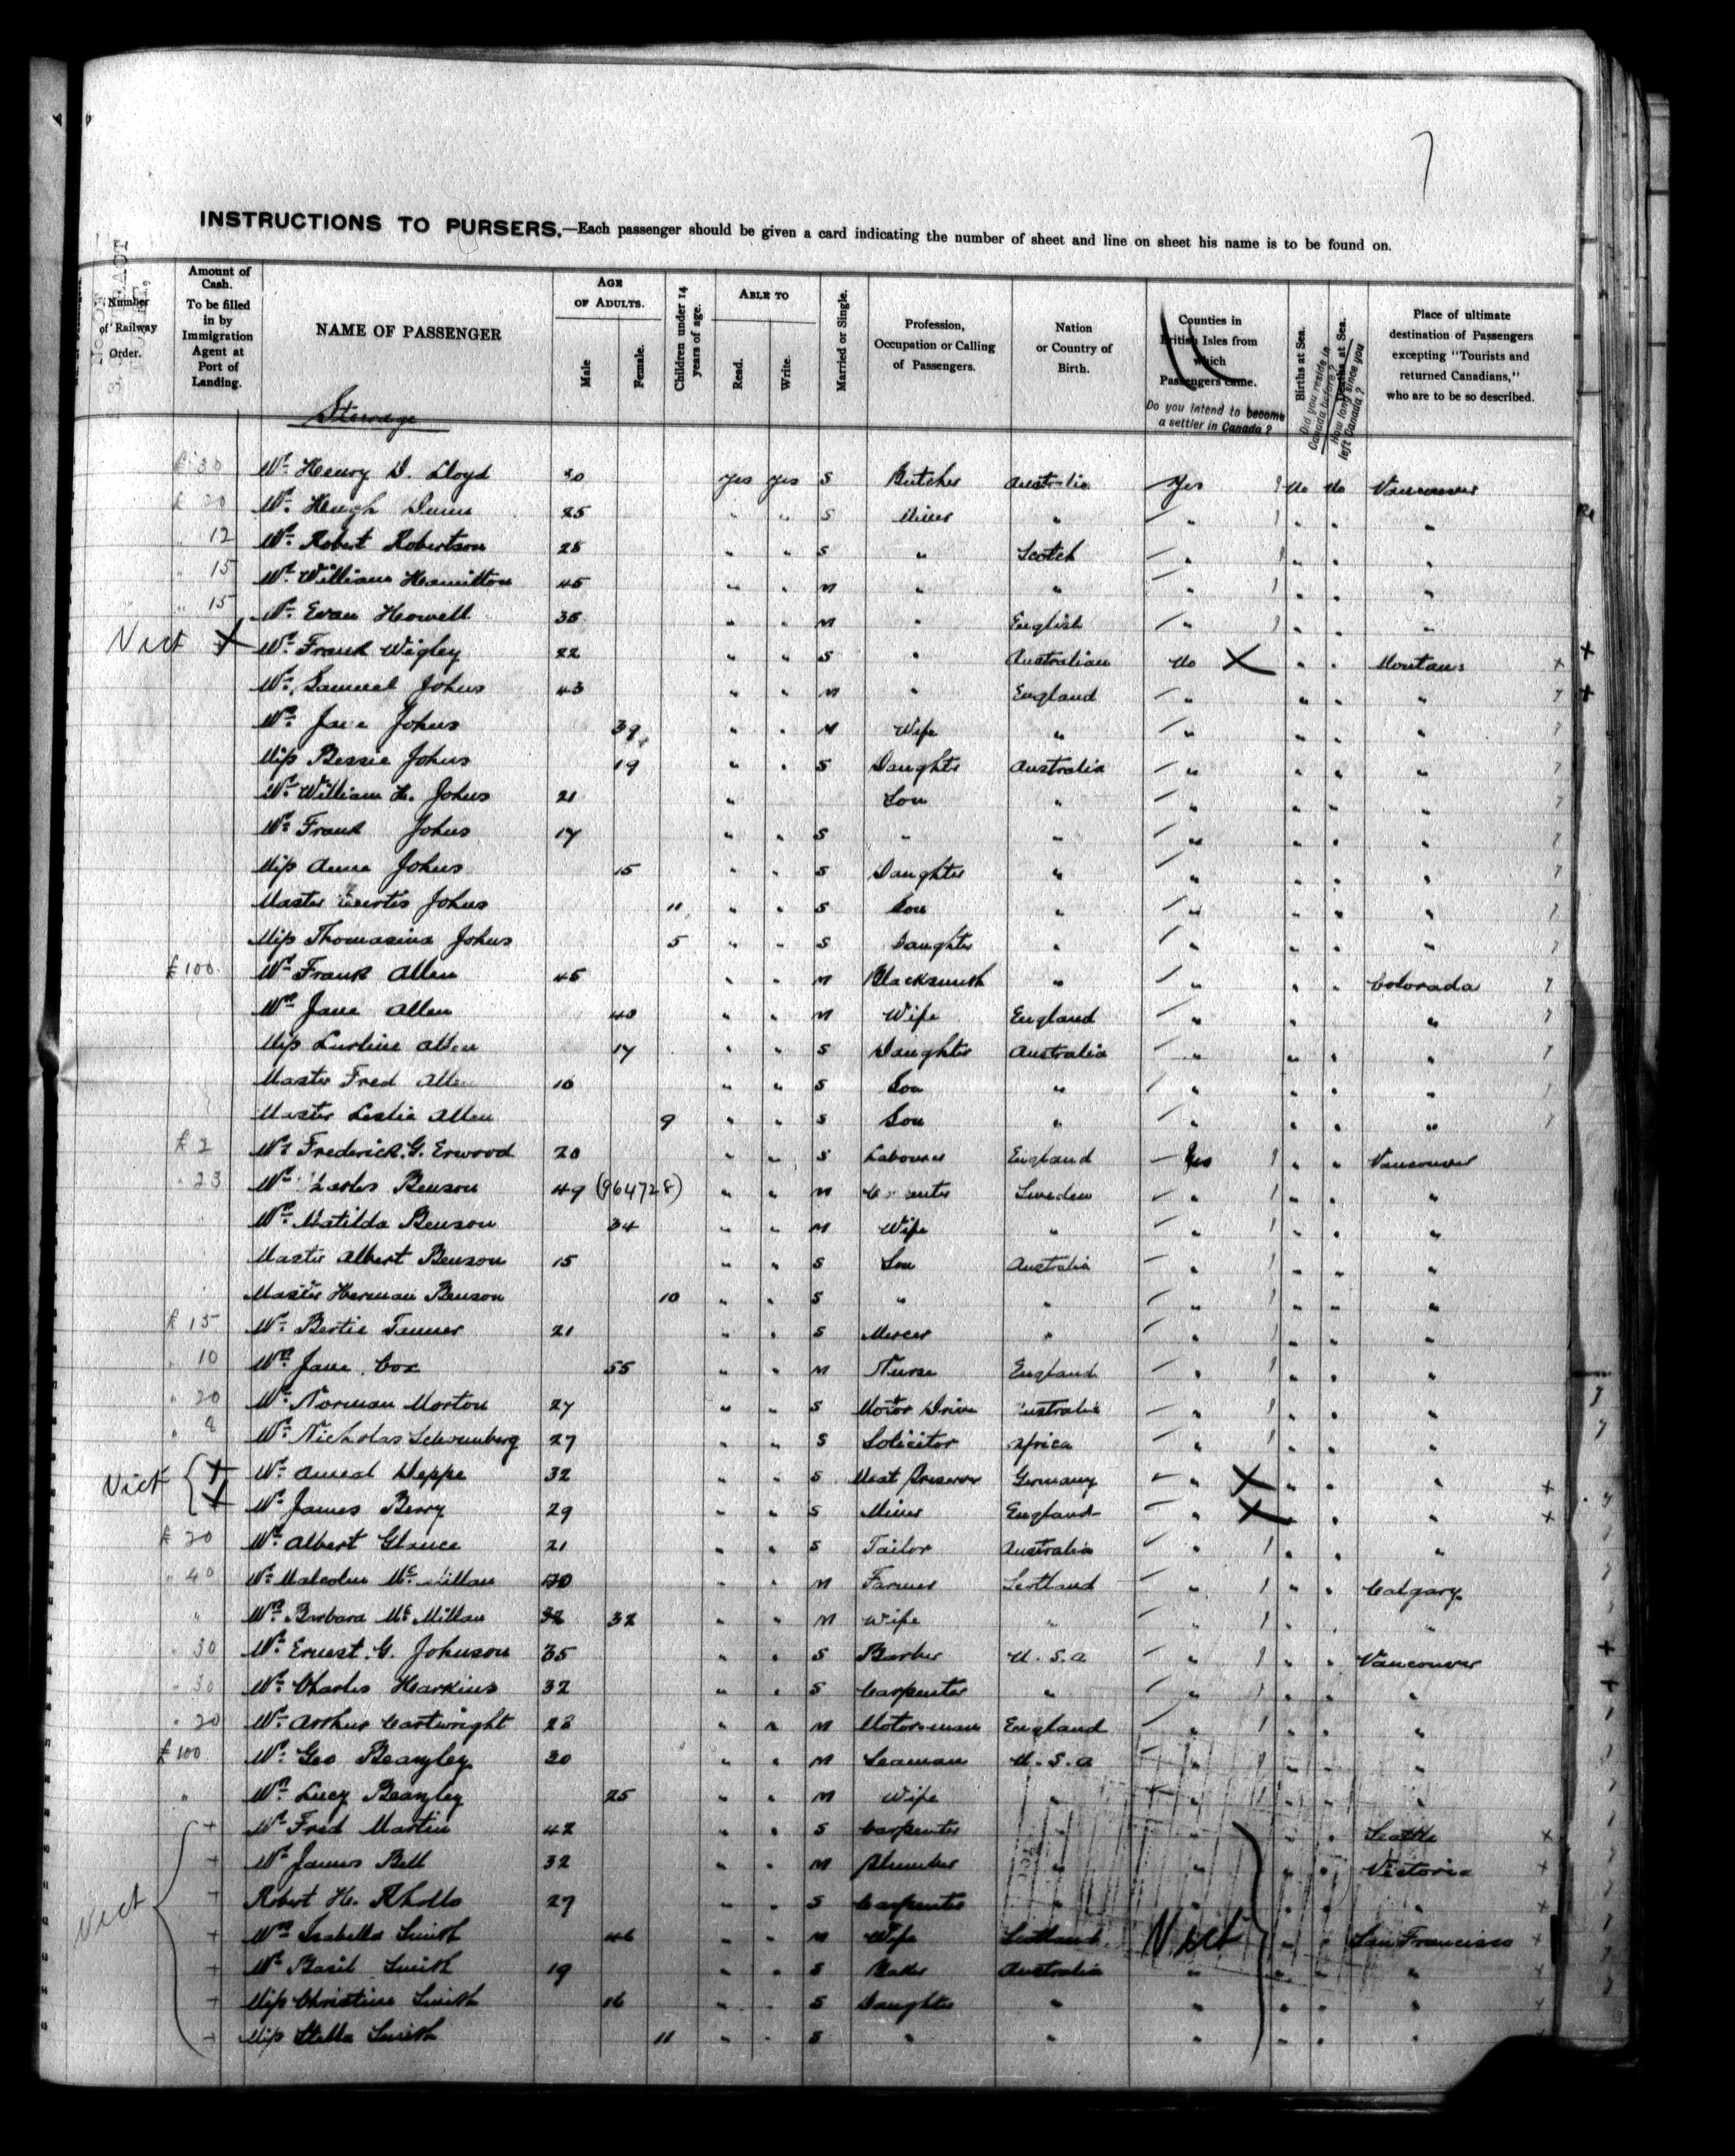 7
INSTRUCTIONS TO PURSERS.—Each passenger should be given a card indicating the number of sheet and line on sheet his name is to be found on.
Number of Railway Order. Amount of Cash. To be filled in by Immigration Agent at Port of Landing. NAME OF PASSENGER AGE OF ADULTS. Male Female. Children under 14 years of age. ABLE TO Read. Write. Married or Single. Profession, Occupation or Calling of Passengers. Nation or Country of Birth. Counties in British Isles from which Passengers came. Do you intend to become a settler in Canada? Births at Sea. Did you reside in Canada before? Deaths at Sea. How long since you left Canada? Place of ultimate destination of Passengers excepting "Tourists and returned Canadians," who are to be so described.
Steerage
£ 30 Mr. Henry D. Lloyd yes yes S Butcher Australia Yes 1 No No Vancouver
£ 20 Mr. Hugh 25 " " S Miner " " 1 " " "
" 12 Mr. Robert Robertson 28 " " S " Scotch " 1 " " "
" 15 Mr. William Hamilton 45 " " M " " " 1 " " "
" 15 Mr. Evan Howell 35 " " M " English " 1 " " "
Vict X Mr. Frank Wigley 22 " " S " Australian No X " " Montana x
Mr. Samuel Johns 43 " " M " England " " " "
Mrs. Jane Johns 39 " " M Wife " " " " "
Miss Bessie Johns 19 " " S Daughter Australia " " " "
Mr. William H. Johns 21 " Son " " " " "
Mr. Frank Johns 17 " " S " " " " " "
Miss Anna Johns 15 " " S Daughter " " " " "
Master Johns 11 " " S Son " " " " "
Miss Thomasina Johns 5 " " S Daughter " " " " "
£100 Mr. Frank Allen 45 " " M Blacksmith " " " " Colorada
Mrs. Jane Allen 40 " " M Wife England " " "
Miss Allen 17 " " S Daughter Australia " " " "
Master Fred Allen 16 " " S Son " " " " "
Master Leslie Allen 9 " " S Son " " " " "
£ 2 Mr. Frederick G. Erwood 20 " " S Labourer England Yes 1 " " Vancouver
" 23 Mr. Benson 49 (964728) " " M Sweden " 1 " " "
Mrs. Matilda Benson 34 " " M Wife " " 1 " " "
Master Albert Benson 15 " " S Son Australia " 1 " " "
Master Herman Benson 10 " " S " " " 1 " " "
£ 15 Mr. Bertie Tanner 21 " " S Mercer " " 1 " " "
" 10 Mrs. Jane Cox 55 " " M Nurse England " 1 " " "
" 20 Mr. Norman Morton 27 " " S Motor Driver Australia " 1 " " "
" 8 Mr. Nicholas 27 " " S Solicitor Africa " 1 " " "
Vict + Mr. Deppe 32 " " S Meat Preserver Germany " X " " " x
+ Mr. James Berry 29 " " S Miner England " X " " " x
£ 20 Mr. Albert 21 " " S Tailor Australia " 1 " " "
" 40 Mr. Malcolm " " M Farmer Scotland " 1 " " Calgary
" Mrs. Barbara McMillan 32 " " M Wife " " 1 " " "
" 30 Mr. Ernest G. Johnson 35 " " S Barber U.S.A " 1 " " Vancouver
" 30 Mr. Charles Harkins 32 " " S Carpenter " " 1 " " "
" 20 Mr. Arthur Cartwright " " M Motorman England " 1 " " "
£100 Mr. Geo Beazley 30 " " M Seaman U.S.A " 1 " " "
" Mrs. Lucy Beazley 25 " " M Wife " " 1 " " "
+ Mr. Fred Martin 42 " " S Carpenter " " " " Seattle x
+ Mr. James Bell 32 " " M Plumber " " " " Victoria x
Vict + Robert H. 27 " " S Carpenter " " " " " x
+ Mrs. Isabella Smith 46 " " M Wife Scotland Vict " " San Francisco +
+ Mr. Basil Smith 19 " " S Australia " " " " +
+ Miss Christine Smith 16 " " S Daughter " " " " " +
+ Miss Stella Smith 11 " " S " " " " " "